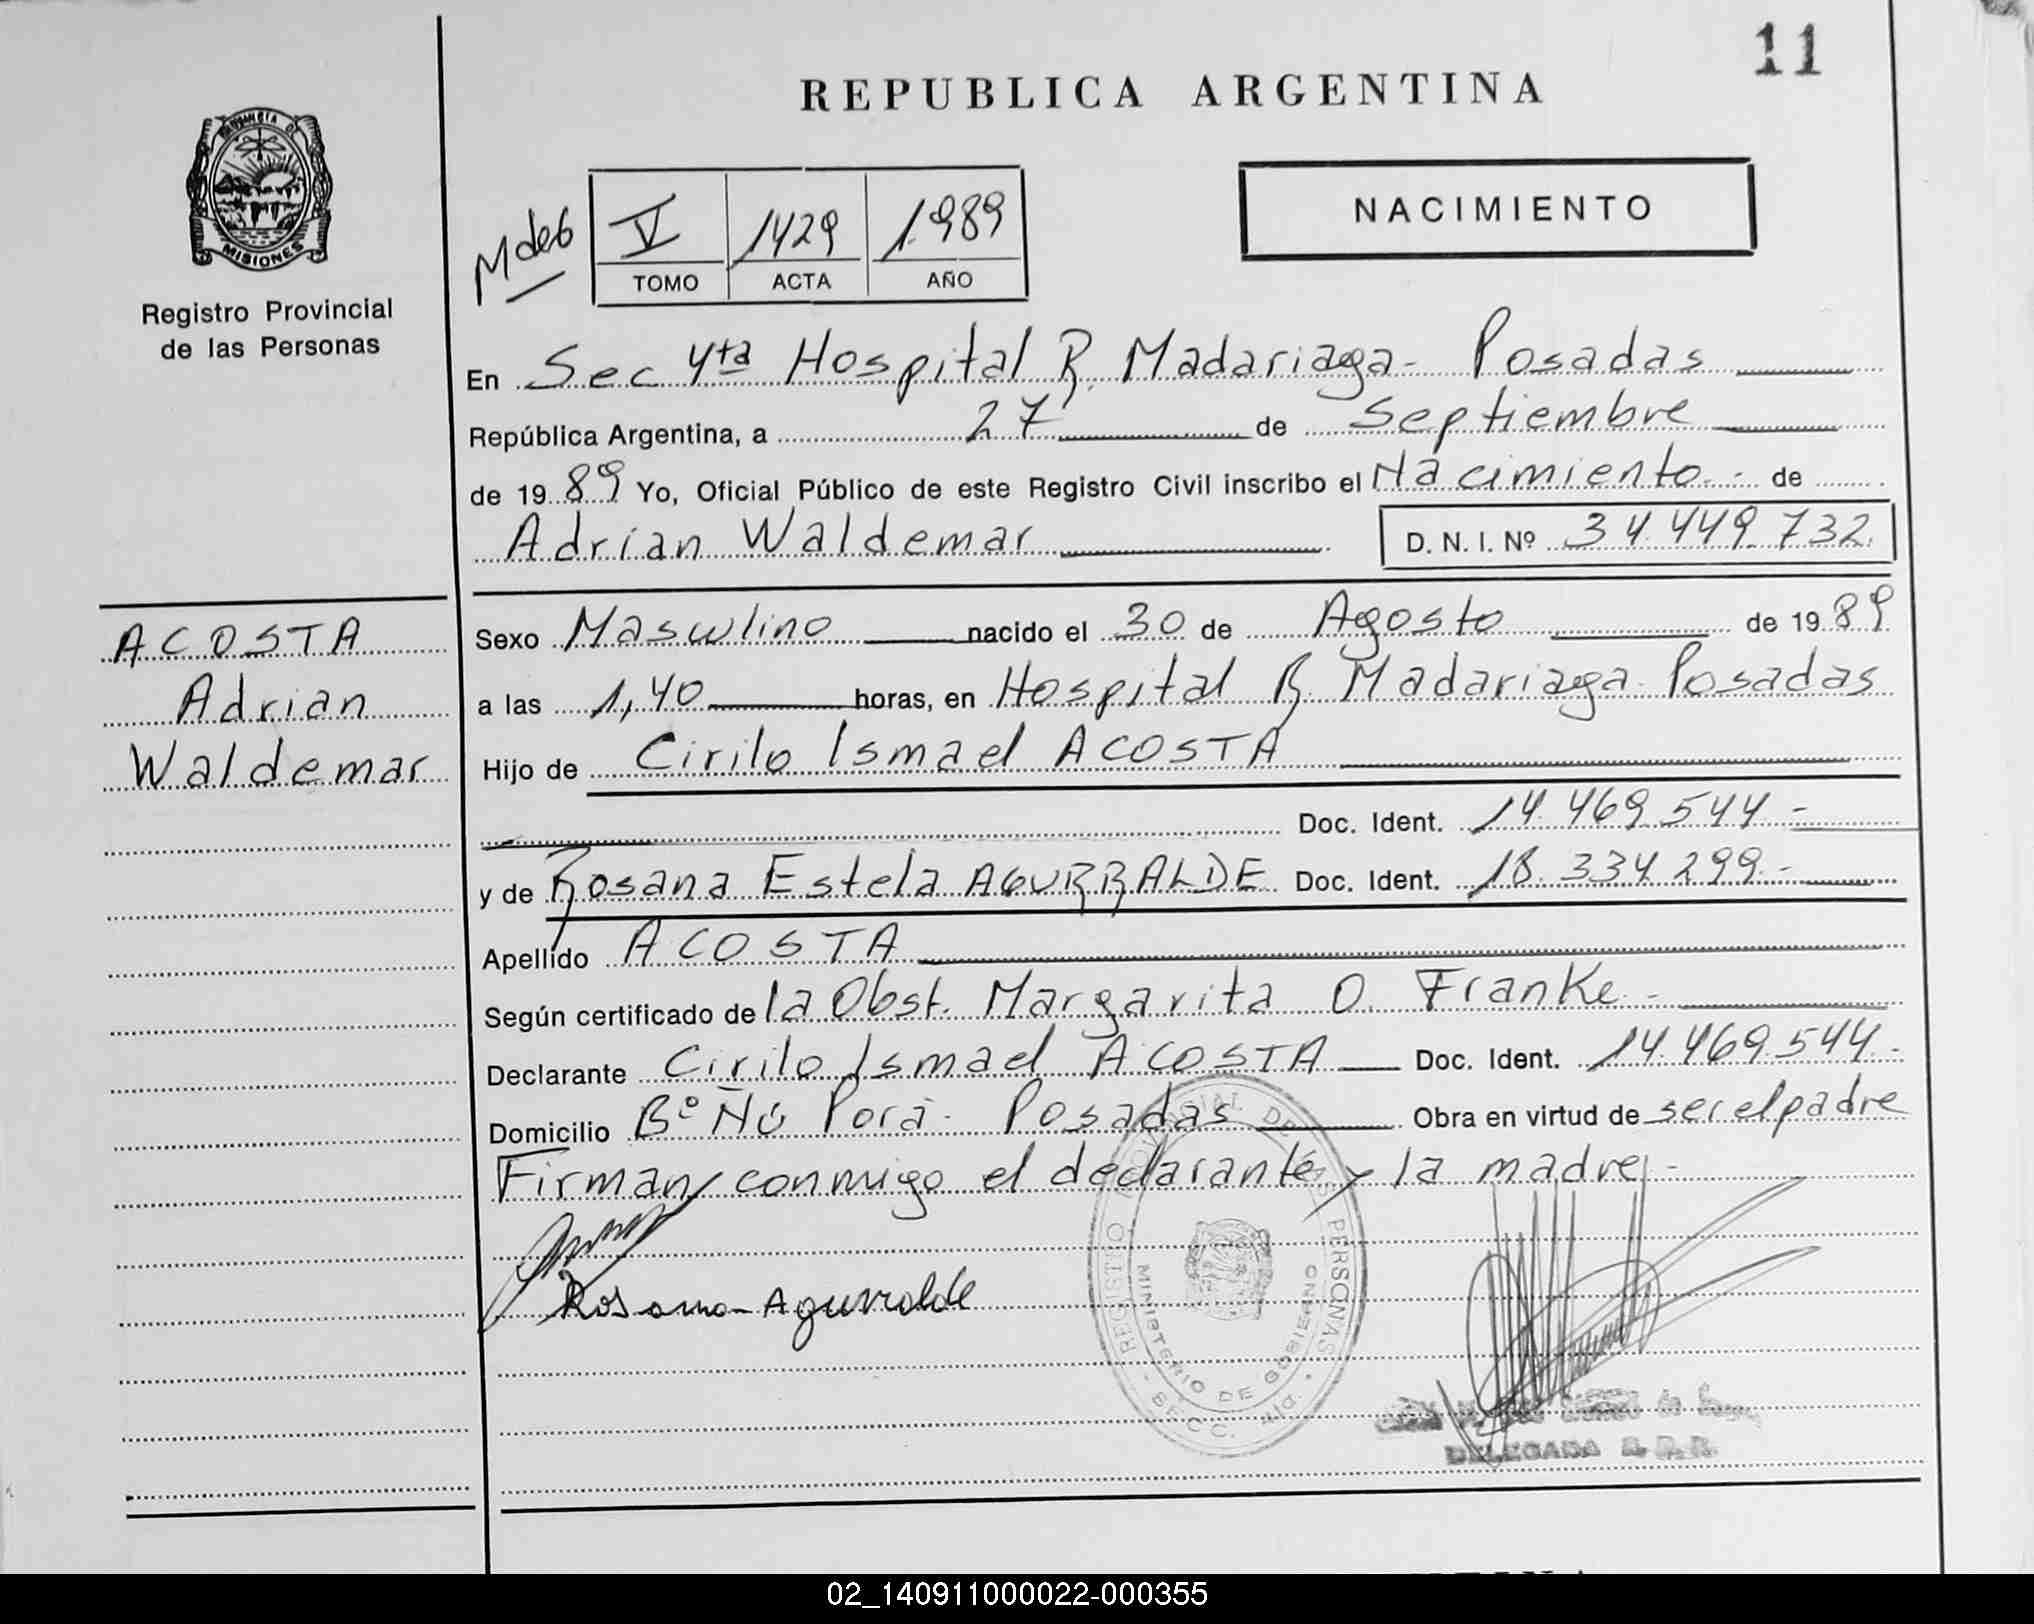 11
REPUBLICA ARGENTINA
PROVINCIA DE
MISIONES
Registro Provincial
de las Personas
NACIMIENTO
V 1429 1.989
TOMO ACTA AÑO
En Sec 4ta Hospital R. Madariaga- Posadas
República Argentina, a 27 de Septiembre
de 1989 Yo, Oficial Público de este Registro Civil inscribo el Nacimiento.- de
Adrian Waldemar D. N. I. Nº 34.449.732.
ACOSTA
Adrian
Waldemar
Sexo Masculino nacido el 30 de Agosto de 1989
a las 1,40 horas, en Hospital R. Madariaga. Posadas
Hijo de Cirilo Ismael ACOSTA
Doc. Ident. 14.469.544.-
y de Rosana Estela AGURRALDE Doc. Ident. 18.334.299.-
Apellido ACOSTA
Según certificado de la Obst. Margarita O. Franke.-
Declarante Cirilo Ismael ACOSTA Doc. Ident. 14.469.544.-
Domicilio Bº Ñú Porá- Posadas Obra en virtud de ser el padre
Firman conmigo el declarante y la madre.-
Rosana Agurralde
REGISTRO PROVINCIAL DE LAS PERSONAS
MINISTERIO DE GOBIERNO
DELEGADA
02_140911000022-000355